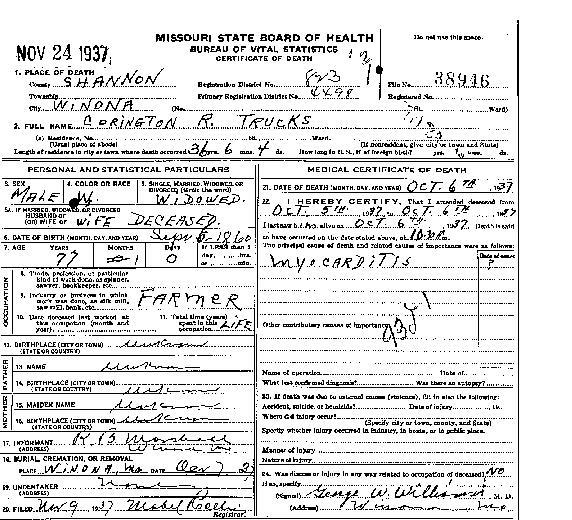 MISSOURI STATE BOARD OF HEALTH
BUREAU OF VITAL STATISTICS
CERTIFICATE OF DEATH
Do not use this space.
NOV 24 1937
1. PLACE OF DEATH
County SHANNON Registration District No. 823 File No. 38946
Township Primary Registration District No. 4498 Registered No.
City WINONA (No. St. Ward)
2. FULL NAME CORINGTON R. TRUCKS
(a) Residence, No. St. Ward.
(Usual place of abode) (If nonresident, give city or town and State)
Length of residence in city or town where death occurred 36 yrs. 6 mos. 4 ds. How long in U. S., if of foreign birth? yrs. mos. ds.
PERSONAL AND STATISTICAL PARTICULARS
3. SEX MALE
4. COLOR OR RACE W.
5. SINGLE, MARRIED, WIDOWED, OR DIVORCED (write the word) WIDOWED.
5A. IF MARRIED, WIDOWED, OR DIVORCED
HUSBAND OF (OR) WIFE OF WIFE DECEASED.
6. DATE OF BIRTH (MONTH, DAY, AND YEAR) Sept 1860
7. AGE YEARS 77 MONTHS 1 DAYS 0
OCCUPATION
8. Trade, profession, or particular kind of work done, as spinner, sawyer, bookkeeper, etc.
9. Industry or business in which work was done, as silk mill, saw mill, bank, etc. FARMER
10. Date deceased last worked at this occupation (month and year)
11. Total time (years) spent in this occupation LIFE
12. BIRTHPLACE (CITY OR TOWN) Unknown
(STATE OR COUNTRY)
FATHER
13. NAME Unknown
14. BIRTHPLACE (CITY OR TOWN) Unknown
(STATE OR COUNTRY)
MOTHER
15. MAIDEN NAME Unknown
16. BIRTHPLACE (CITY OR TOWN) Unknown
(STATE OR COUNTRY)
17. INFORMANT
(ADDRESS) Winona Mo
18. BURIAL, CREMATION, OR REMOVAL
PLACE WINONA, Mo. DATE Oct 7
19. UNDERTAKER None
(ADDRESS)
20. FILED Nov 9 1937 Mabel
Registrar.
MEDICAL CERTIFICATE OF DEATH
21. DATE OF DEATH (MONTH, DAY, AND YEAR) OCT. 6TH 1937
22. I HEREBY CERTIFY, That I attended deceased from
OCT 5TH 1937 to OCT 6TH 1937
I last saw h alive on OCT 6TH 1937. Death is said
to have occurred on the date stated above, at
The principal cause of death and related causes of importance were as follows:
Date of onset
MYOCARDITIS
Other contributory causes of importance:
Name of operation Date of
What test confirmed diagnosis? Was there an autopsy?
23. If death was due to external causes (violence), fill in also the following:
Accident, suicide, or homicide? Date of injury 19
Where did injury occur?
(Specify city or town, county, and State)
Specify whether injury occurred in industry, in home, or in public place.
Manner of injury
Nature of injury
24. Was disease or injury in any way related to occupation of deceased? NO
If so, specify
(Signed) George W. Williams M. D.
(Address) Winona Mo